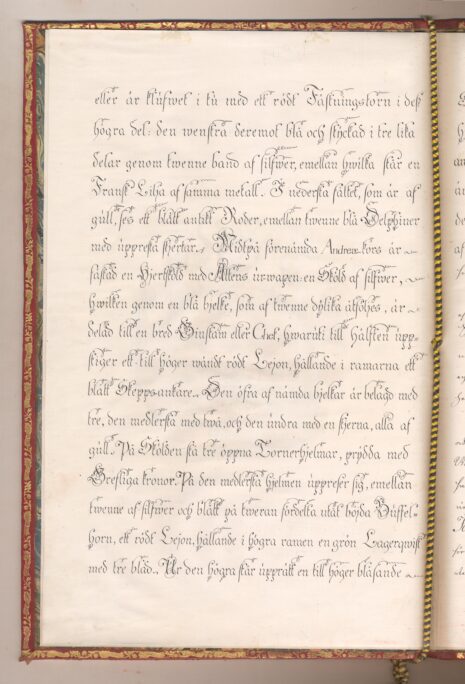 eller är klufwet i tu med ett rödt Fästningstorn i deß
högra del: den wenstra deremot blå och styckad i tre lika
delar genom twenne band af silfwer, emellan hwilka står en
Fransk Lilja af samma metall. I nedersta fältet, som är af
guld, ses ett blått antikt Roder, emellan twenne blå Delphiner
med uppresta stjertar. Midtpå förenämda Andreæ kors är
fästad en Hjertsköld med Ättens urwapen: en Sköld af silfwer,
hwilken genom en blå bjelke, som af twenne dylika åtföljes, är
delad till en bred Ginstam eller Chef, hwaruti till hälften upp-
stiger ett till höger wändt rödt Lejon, hållande i ramarna ett
blått Skeppsankare. Den öfra af nämda bjelkar är belagd med
tre, den medlersta med twå, och den undra med en stjerna, alla af
gull. På Skölden stå tre öppna Tornerhjelmar, prydda med
Grefliga kronor. På den medlersta hjelmen uppreser sig, emellan
twenne af silfwer och blått på tweran fördelta utåt böjda Buffel-
horn, ett rödt Lejon, hållande i högra ramen en grön Lagerqwist
med tre blad. Ur den högra står upprätt en till höger blåsande